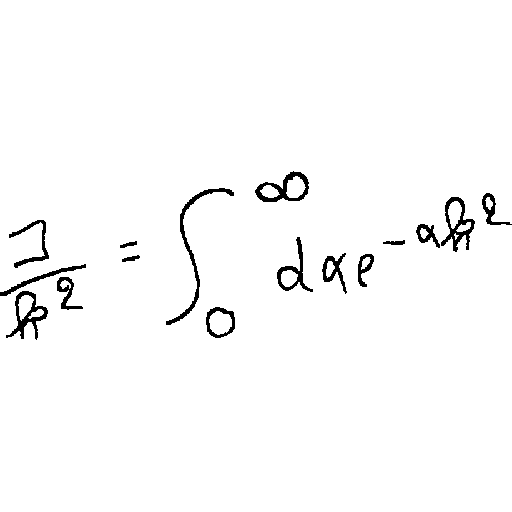 \frac{1}{k^2} = \int_0^\infty d\alpha e^{-\alpha k^2}